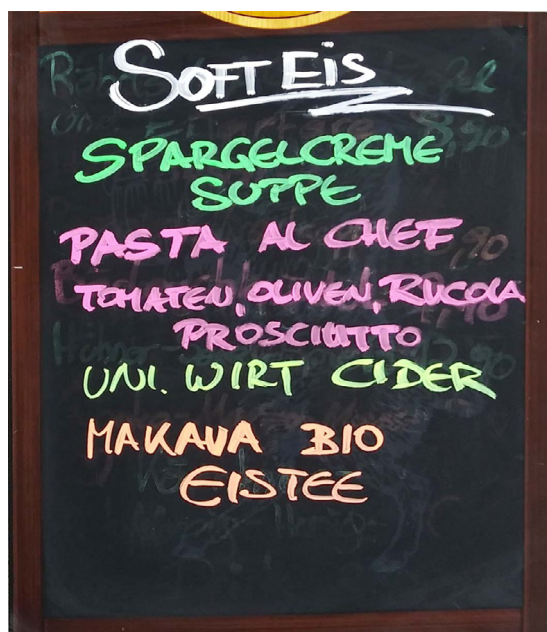 SOFT EIS
SPARGELCREME
SUPPE
PASTA AL CHEF
TOMATEN, OLIVEN, RUCOLA
PROSCIUTTO
UNI. WIRT CIDER
MAKAVA BIO
EISTEE